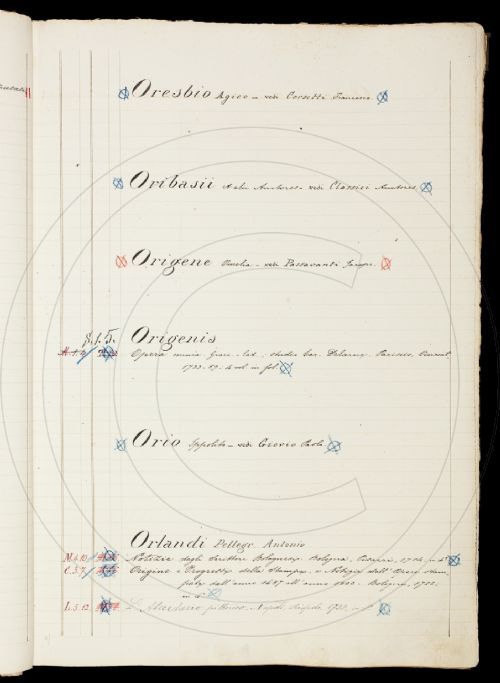 Oresbio Agieo - vedi Corsetti Francesco.
Oribasii - vedi Classici Auctores
Origene Omelia - vedi Passavanti Jacopo.
8.1.5.
Origenis
Opera omnia Graec. lat. studio Car. Delarue. Parisiis, Vincent
1733-59. 4 vol. in fol.
Orio Ippolito - vedi Paolo
Orlandi Pellegr. Antonio
M.4.10. Notizie degli Scrittori Bolognesi. Bologna, Pisarri, 1714, in 4°
C.3.7. Origine e Progressi della Stampa, o Notizie dell' Opere stam
pate dall' anno 1457 all' anno 1500. Bologna, 1722.
in 4°
L.5.12. L' Abcedario pittorico. Napoli,